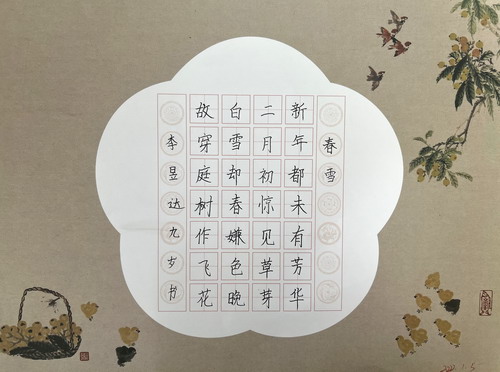 春雪
新年都未有芳华
二月初惊见草芽
白雪却春嫌色晚
故穿庭树作飞花
李昱达九岁书